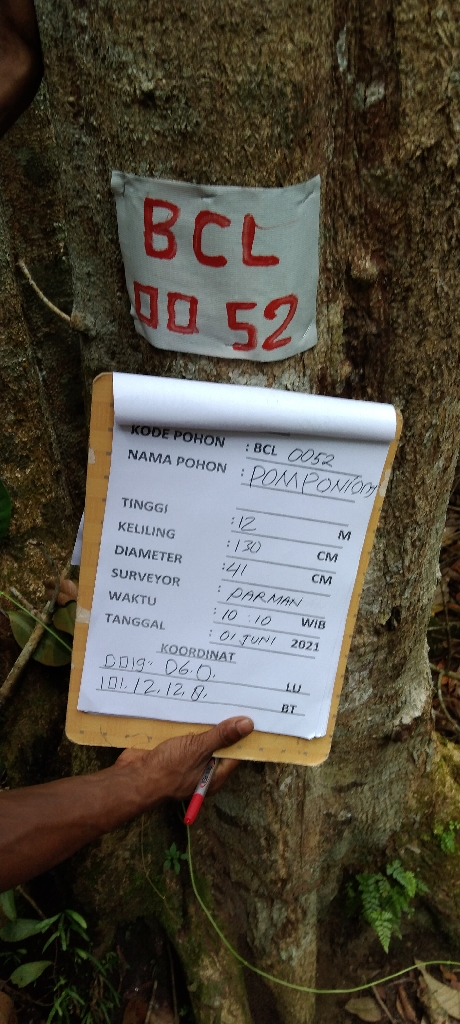 BCL
0052
KODE POHON : BCL 0052
NAMA POHON : POMPONTOM
TINGGI : 12 M
KELILING : 130 CM
DIAMETER : 41 CM
SURVEYOR : PARMAN
WAKTU : 10:10 WIB
TANGGAL : 01 JUNI 2021
KOORDINAT
0019. 06.0. LU
101.12.12.8. BT